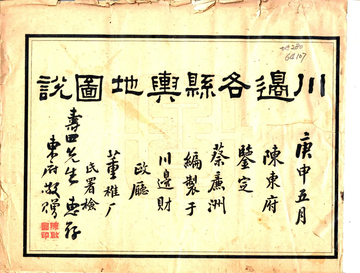 川邊各縣輿地圖說
庚申五月
陳東府
鑒定
蔡廉洲
編製于
川邊財
政廳
董雄厂
氏署檢
壽四先生惠存
東府敬贈